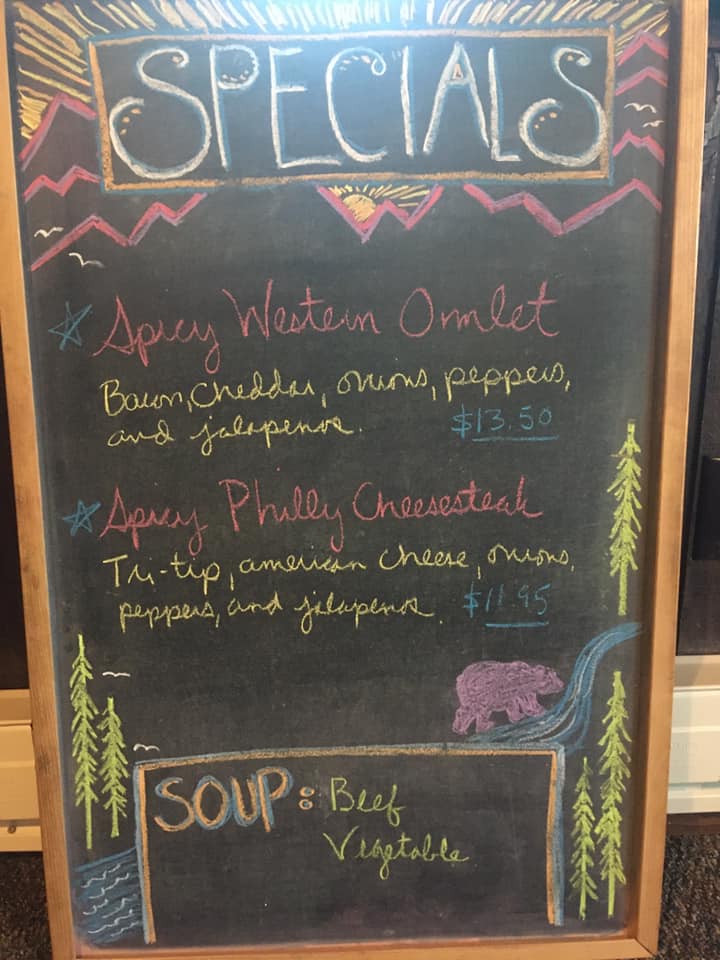 SPECIALS
Spicy Western Omlet
Bacon, Cheddar, onions, peppers,
and jalapenos. $13.50
Spicy Philly Cheesesteak
Tri-tip, american cheese, onions,
peppers, and jalapenos. $11.95
SOUP: Beef
Vegetable